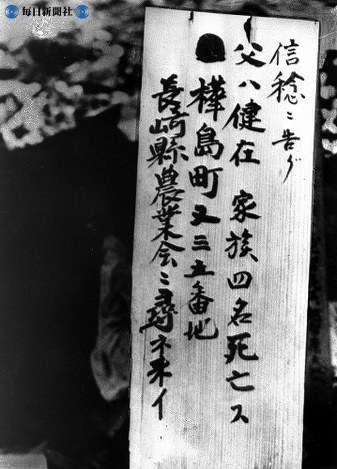 毎日新聞社
信稔ニ告グ
父ハ健在 家族四名死亡ス
樺島町五三五番地
長崎縣農業会ニ尋ネ来イ